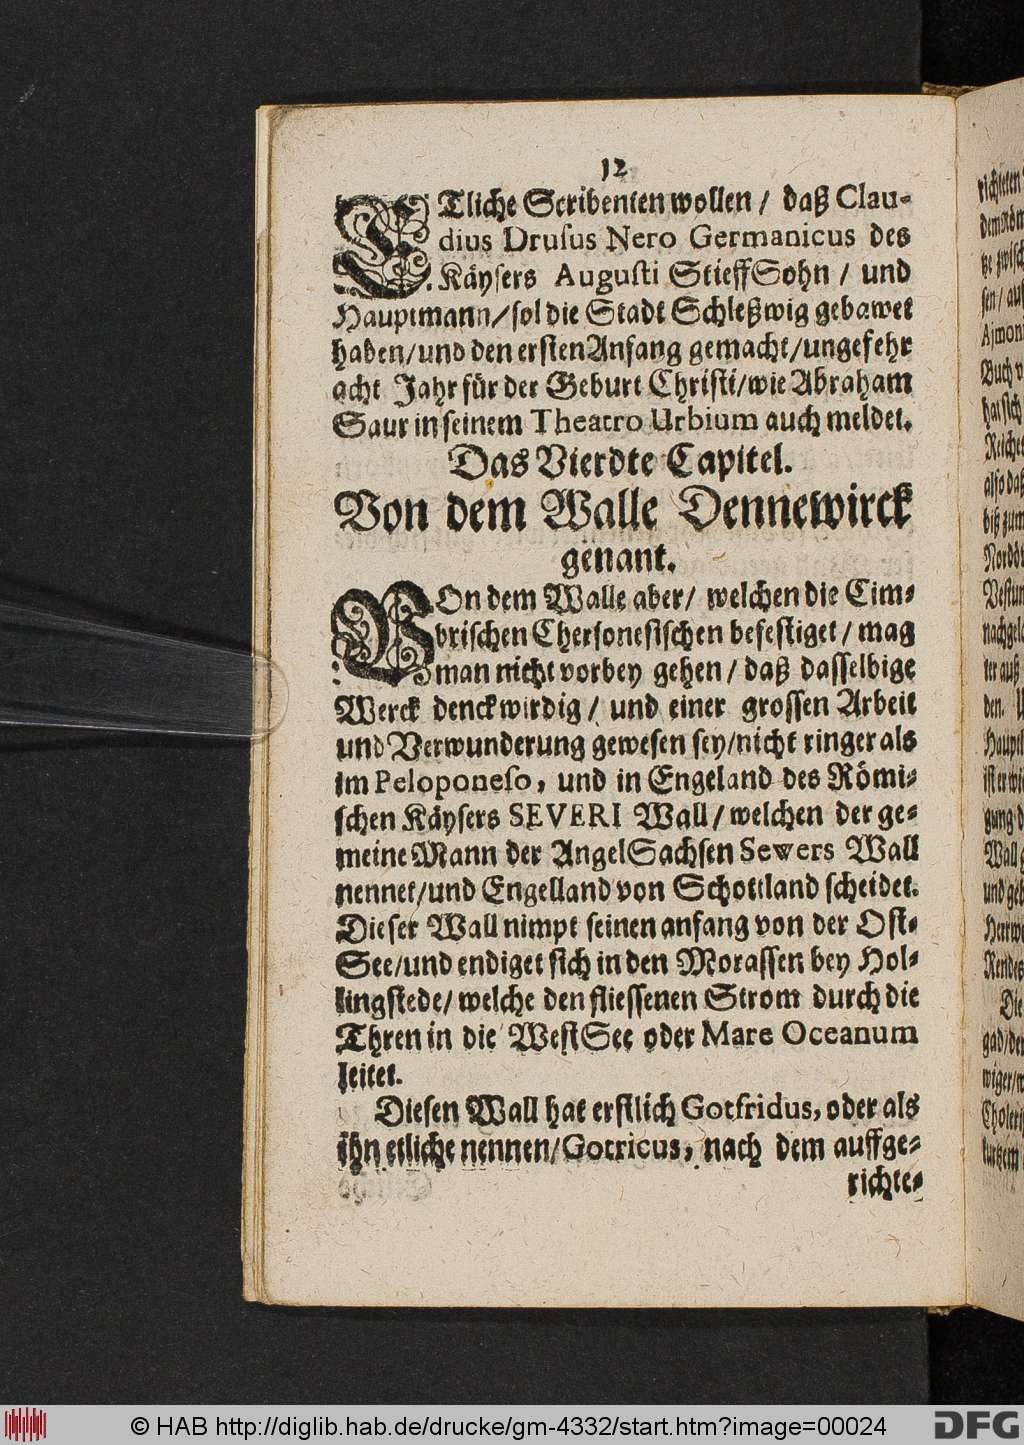 12
ETliche Scribenten wollen / daß Clau-
dius Drusus Nero Germanicus des
Käysers Augusti StieffSohn / und
Hauptmann / sol die Stadt Schleßwig gebawet
haben / und den ersten Anfang gemacht / ungefehr
acht Jahr für der Geburt Christi / wie Abraham
Saur in seinem Theatro Urbium auch meldet.
Das Vierdte Capitel.
Von dem Walle Dennewirck
genant.
VOn dem Walle aber / welchen die Cim-
brischen Chersonesischen befestiget / mag
man nicht vorbey gehen / daß dasselbige
Werck denckwirdig / und einer grossen Arbeit
und Verwunderung gewesen sey / nicht ringer als
im Peloponeso, und in Engeland des Römi-
schen Käysers SEVERI Wall / welchen der ge-
meine Mann der AngelSachsen Sewers Wall
nennet / und Engelland von Schottland scheidet.
Dieser Wall nimpt seinen anfang von der Ost-
See / und endiget sich in den Morassen bey Hol-
lingstede / welche den fliessenen Strom durch die
Thren in die WestSee oder Mare Oceanum
leitet.
Diesen Wall hat erstlich Gotfridus, oder als
ihn etliche nennen / Gotricus, nach dem auffge-
richte-
© HAB http://diglib.hab.de/drucke/gm-4332/start.htm?image=00024
DFG